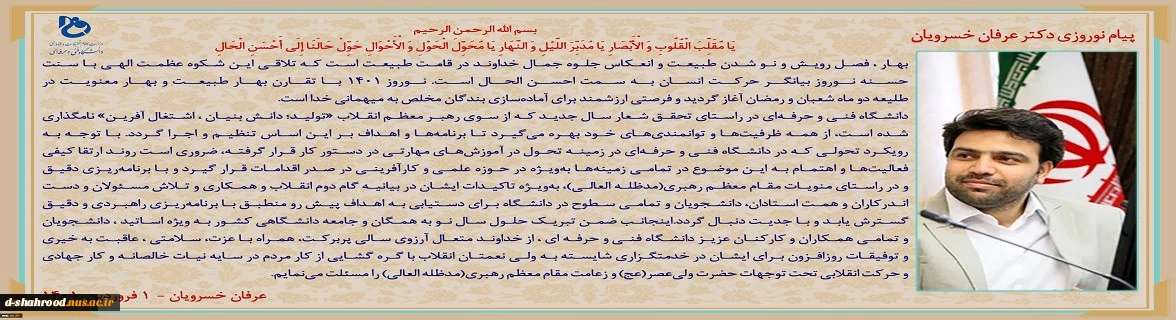 پیام نوروزی دکتر عرفان خسرویان
بسم الله الرحمن الرحیم
یَا مُقَلِّبَ الْقُلُوبِ وَ الْأَبْصَارِ یَا مُدَبِّرَ اللَّیْلِ وَ النَّهَارِ یَا مُحَوِّلَ الْحَوْلِ وَ الْأَحْوَالِ حَوِّلْ حَالَنَا إِلَى أَحْسَنِ الْحَالِ
بهار ، فصل رویش و نو شدن طبیعت و انعکاس جلوه جمال خداوند در قامت طبیعت است که تلاقی این شکوه عظمت الهی با سنت
حسنه نوروز بیانگر حرکت انسان به سمت احسن الحال است. نوروز ۱۴۰۱ با تقارن بهار طبیعت و بهار معنویت در
طلیعه دو ماه شعبان و رمضان آغاز گردید و فرصتی ارزشمند برای آماده‌سازی بندگان مخلص به میهمانی خدا است.
دانشگاه فنی و حرفه‌ای در راستای تحقق شعار سال جدید که از سوی رهبر معظم انقلاب «تولید؛ دانش بنیان ، اشتغال آفرین» نامگذاری
شده است، از همه ظرفیت‌ها و توانمندی‌های خود بهره می‌گیرد تا برنامه‌ها و اهداف بر این اساس تنظیم و اجرا گردد. با توجه به
رویکرد تحولی که در دانشگاه فنی و حرفه‌ای در زمینه تحول در آموزش‌های مهارتی در دستور کار قرار گرفته، ضروری است روند ارتقا کیفی
فعالیت‌ها و اهتمام به این موضوع در تمامی زمینه‌ها به‌ویژه در حوزه علمی و کارآفرینی در صدر اقدامات قرار گیرد و با برنامه‌ریزی دقیق
و در راستای منویات مقام معظم رهبری(مدظله العالی)، به‌ویژه تاکیدات ایشان در بیانیه گام دوم انقلاب و همکاری و تلاش مسئولان و دست
اندرکاران و همت استادان، دانشجویان و تمامی سطوح در دانشگاه برای دستیابی به اهداف پیش رو منطبق با برنامه‌ریزی راهبردی و دقیق
گسترش یابد و با جدیت دنبال گردد.اینجانب ضمن تبریک حلول سال نو به همگان و جامعه دانشگاهی کشور به ویژه اساتید ، دانشجویان
و تمامی همکاران و کارکنان عزیز دانشگاه فنی و حرفه ای ، از خداوند متعال آرزوی سالی پربرکت، همراه با عزت، سلامتی ، عاقبت به خیری
و توفیقات روزافزون برای ایشان در خدمتگزاری شایسته به ولی نعمتان انقلاب با گره گشایی از کار مردم در سایه نیات خالصانه و کار جهادی
و حرکت انقلابی تحت توجهات حضرت ولی‌عصر(عج) و زعامت مقام معظم رهبری(مدظله العالی) را مسئلت می‌نمایم.
عرفان خسرویان - ۱
d-shahrood.nus.ac.ir